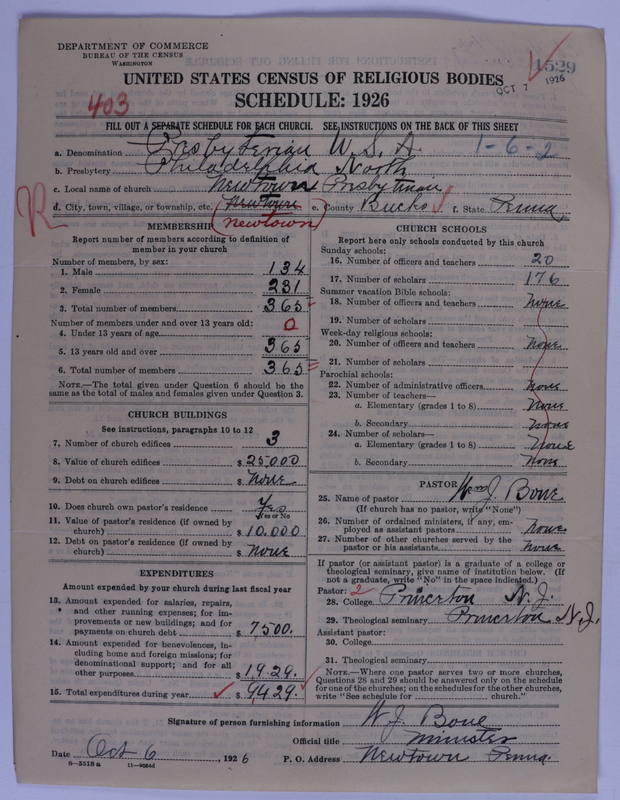 DEPARTMENT OF COMMERCE
BUREAU OF THE CENSUS
WASHINGTON
1529
OCT 7 1926
UNITED STATES CENSUS OF RELIGIOUS BODIES
SCHEDULE: 1926
403
FILL OUT A SEPARATE SCHEDULE FOR EACH CHURCH. SEE INSTRUCTIONS ON THE BACK OF THIS SHEET
a. Denomination Presbyterian U. S. A. 1-6-2
b. Presbytery Philadelphia North
c. Local name of church Newtown Presbyterian
d. City, town, village, or township, etc. Newtown (Newtown) e. County Bucks f. State Penna.
R
MEMBERSHIP
Report number of members according to definition of member in your church
Number of members, by sex:
1. Male 134
2. Female 231
3. Total number of members 365
Number of members under and over 13 years old:
4. Under 13 years of age 0
5. 13 years old and over 365
6. Total number of members 365
NOTE.—The total given under Question 6 should be the same as the total of males and females given under Question 3.
CHURCH BUILDINGS
See instructions, paragraphs 10 to 12
7. Number of church edifices 3
8. Value of church edifices $ 25000
9. Debt on church edifices $ None
10. Does church own pastor's residence Yes
Yes or No
11. Value of pastor's residence (if owned by church) $ 10.000
12. Debt on pastor's residence (if owned by church) $ None
EXPENDITURES
Amount expended by your church during last fiscal year
13. Amount expended for salaries, repairs, and other running expenses; for improvements or new buildings; and for payments on church debt $ 7500.
14. Amount expended for benevolences, including home and foreign missions; for denominational support; and for all other purposes $ 1929.
15. Total expenditures during year $ 9429.
CHURCH SCHOOLS
Report here only schools conducted by this church
Sunday schools:
16. Number of officers and teachers 20
17. Number of scholars 176
Summer vacation Bible schools:
18. Number of officers and teachers None
19. Number of scholars
Week-day religious schools:
20. Number of officers and teachers None
21. Number of scholars
Parochial schools:
22. Number of administrative officers None
23. Number of teachers—
a. Elementary (grades 1 to 8) None
b. Secondary None
24. Number of scholars—
a. Elementary (grades 1 to 8) None
b. Secondary None
PASTOR
25. Name of pastor Wm J. Bone
(If church has no pastor, write "None")
26. Number of ordained ministers, if any, employed as assistant pastors None
27. Number of other churches served by the pastor or his assistants None
If pastor (or assistant pastor) is a graduate of a college or theological seminary, give name of institution below. (If not a graduate, write "No" in the space indicated.)
Pastor: 2
28. College Princeton N. J.
29. Theological seminary Princeton N. J.
Assistant pastor:
30. College
31. Theological seminary
NOTE.—Where one pastor serves two or more churches, Questions 28 and 29 should be answered only on the schedule for one of the churches; on the schedules for the other churches, write "See schedule for church."
Signature of person furnishing information W. J. Bone
Official title Minister
Date Oct 6, 1926 P. O. Address Newtown Penna.
8—5518 a